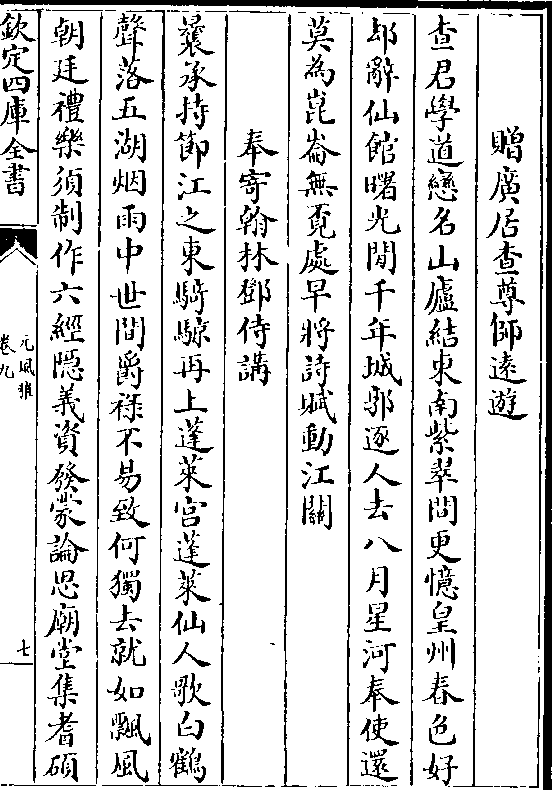 贈廣居查尊師遠遊
查君學道戀名山廬結東南紫翠間更憶皇州春色好
却辭仙館曙光閒千年城郭逐人去八月星河奉使還
莫為崑崙無覓處早將詩賦動江關
奉寄翰林鄧侍講
曩承持節江之東騎鯨再上蓬萊宫蓬萊仙人歌白鶴
聲落五湖烟雨中世間爵祿不易致何獨去就如飄風
朝廷禮樂須制作六經隱義資發蒙論思廟堂集耆碩
欽定四庫全書
元風雅
卷九
七